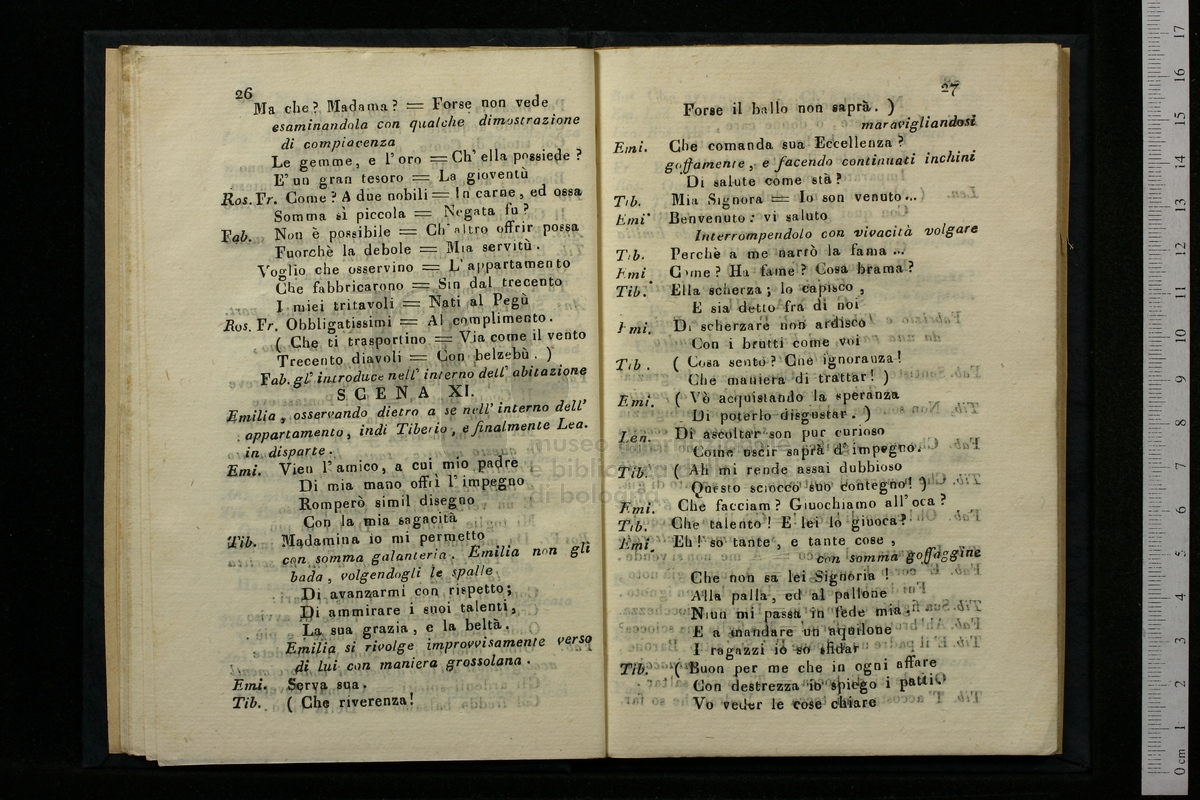 26
Ma che? Madama? = Forse non vede
esaminandola con qualche dimostrazione
di compiacenza
Le gemme, e l'oro = Ch'ella possiede?
E' un gran tesoro = La gioventù
Ros. Fr. Come? A due nobili = In carne, ed ossa
Somma sì piccola = Negata fu?
Fab. Non è possibile = Ch'altro offrir possa
Fuorchè la debole = Mia servitù.
Voglio che osservino = L'appartamento
Che fabbricarono = Sin dal trecento
I miei tritavoli = Nati al Pegù
Ros. Fr. Obbligatissimi = Al complimento.
( Che ti trasportino = Via come il vento
Trecento diavoli = Con belzebù. )
Fab. gl' introduce nell' interno dell' abitazione
SCENA XI.
Emilia, osservando dietro a se nell' interno dell'
appartamento, indi Tiberio, e finalmente Lea.
in disparte.
Emi. Vien l'amico, a cui mio padre
Di mia mano offrì l'impegno
Romperò simil disegno
Con la mia sagacità
Tib. Madamina io mi permetto
con somma galanteria. Emilia non gli
bada, volgendogli le spalle
Di avanzarmi con rispetto;
Di ammirare i suoi talenti,
La sua grazia, e la beltà.
Emilia si rivolge improvvisamente verso
di lui con maniera grossolana.
Emi. Serva sua.
Tib. ( Che riverenza!
27
Forse il ballo non saprà. )
maravigliandosi
Emi. Che comanda sua Eccellenza?
goffamente, e facendo continuati inchini
Di salute come stà?
Tib. Mia Signora = Io son venuto...
Emi. Benvenuto: vi saluto
Interrompendolo con vivacità volgare
Tib. Perchè a me narrò la fama ...
Emi Come? Ha fame? Cosa brama?
Tib. Ella scherza; lo capisco,
E sia detto fra di noi
Emi. Di scherzare non ardisco
Con i brutti come voi
Tib. ( Cosa sento? Che ignoranza!
Che maniera di trattar! )
Emi. ( Vò acquistando la speranza
Di poterlo disgustar. )
Len. Di ascoltar son pur curioso
Come uscir saprà d'impegno.
Tib. ( Ah mi rende assai dubbioso
Questo sciocco suo contegno! )
Emi. Che facciam? Giuochiamo all'oca?
Tib. Che talento! E lei lo giuoca?
Emi. Eh! so tante, e tante cose,
con somma goffaggine
Che non sa lei Signoria!
Alla palla, ed al pallone
Niun mi passa in fede mia.
E a mandare un aquilone
I ragazzi io so sfidar
Tib. ( Buon per me che in ogni affare
Con destrezza io spiego i patti
Vo veder le cose chiare
museo internazionale
e biblioteca
di bologna
0 cm 1 2 3 4 5 6 7 8 9 10 11 12 13 14 15 16 17